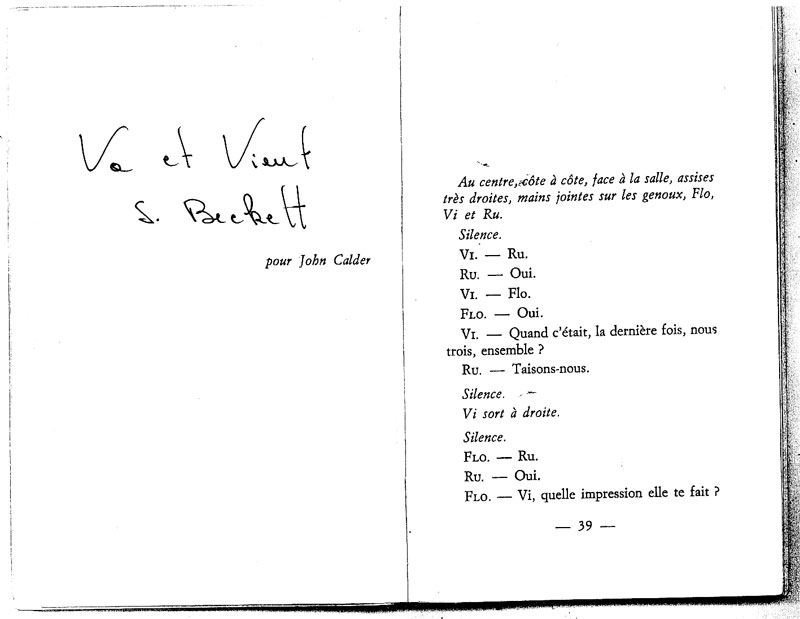 Va et Vient
S. Beckett
pour John Calder
Au centre, côte à côte, face à la salle, assises
très droites, mains jointes sur les genoux, Flo,
Vi et Ru.
Silence.
VI. — Ru.
RU. — Oui.
VI. — Flo.
FLO. — Oui.
VI. — Quand c'était, la dernière fois, nous
trois, ensemble ?
RU. — Taisons-nous.
Silence.
Vi sort à droite.
Silence.
FLO. — Ru.
RU. — Oui.
FLO. — Vi, quelle impression elle te fait ?
— 39 —